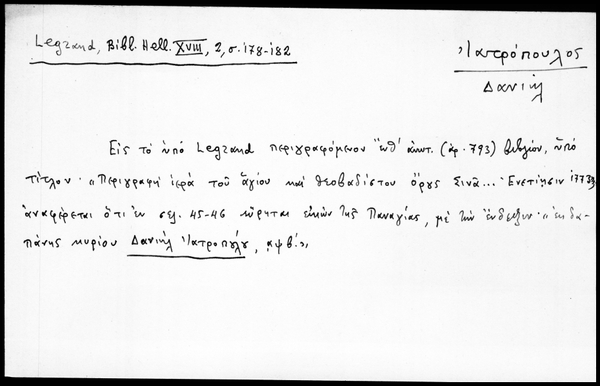 Legrand, Bibl. Hell. XVIII, 2, σ. 178-182
Ἰατρόπουλος
Δανιήλ
Εἰς τὸ ὑπὸ Legrand περιγραφόμενον ἔνθ' ἀνωτ. (ἀρ. 793) βιβλίον, ὑπὸ
τίτλον· «Περιγραφὴ ἱερὰ τοῦ ἁγίου καὶ θεοβαδίστου ὄρους Σινᾶ... Ἐνετίησιν 1773»,
ἀναφέρεται ὅτι ἐν σελ. 45-46 εὕρηται εἰκὼν τῆς Παναγίας, μὲ τὴν ἔνδειξιν· «ἐκ δα-
πάνης κυρίου Δανιὴλ Ἰατροπούλου, αψβ'.»